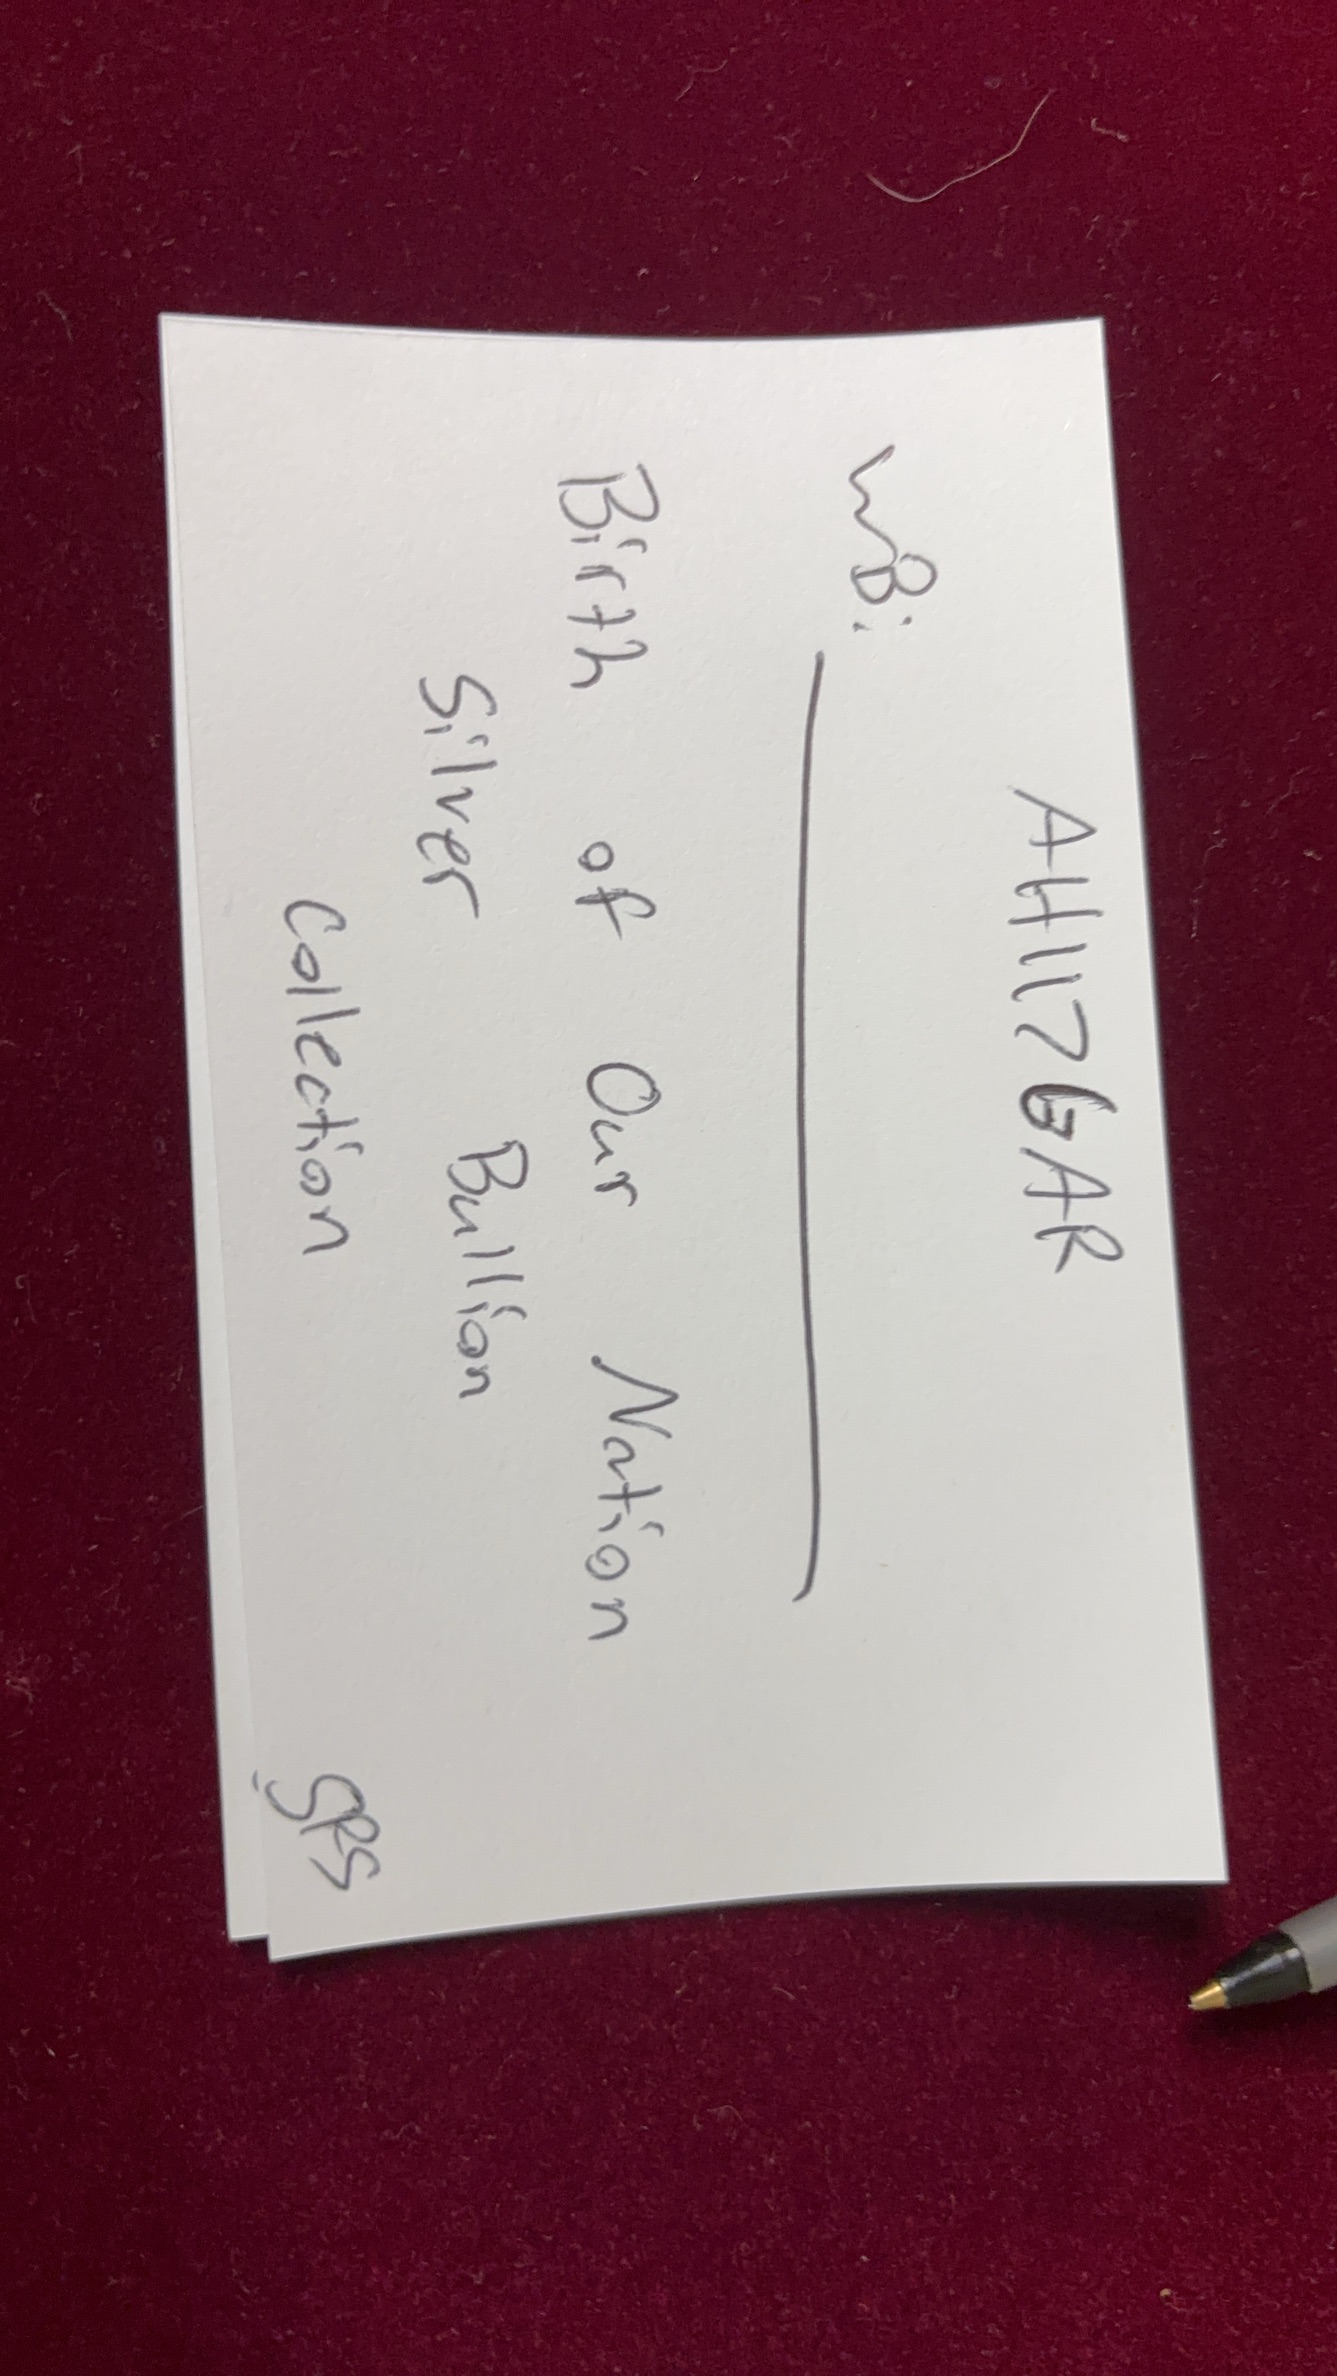 AH117GAR
WB:
Birth of Our Nation
Silver Bullion
Collection
SRS